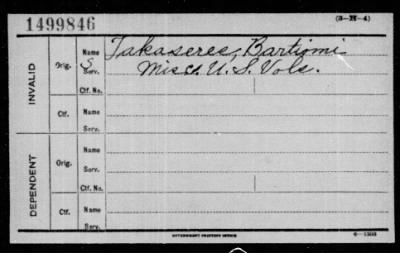 1499846
(3-H-4)
INVALID
Orig. S Name Takaseree, Bartiomi
Serv. Misc. U.S. Vols.
Ctf. No.
Ctf. Name
Serv.
DEPENDENT
Orig. Name
Serv.
Ctf. No.
Ctf. Name
Serv.
GOVERNMENT PRINTING OFFICE